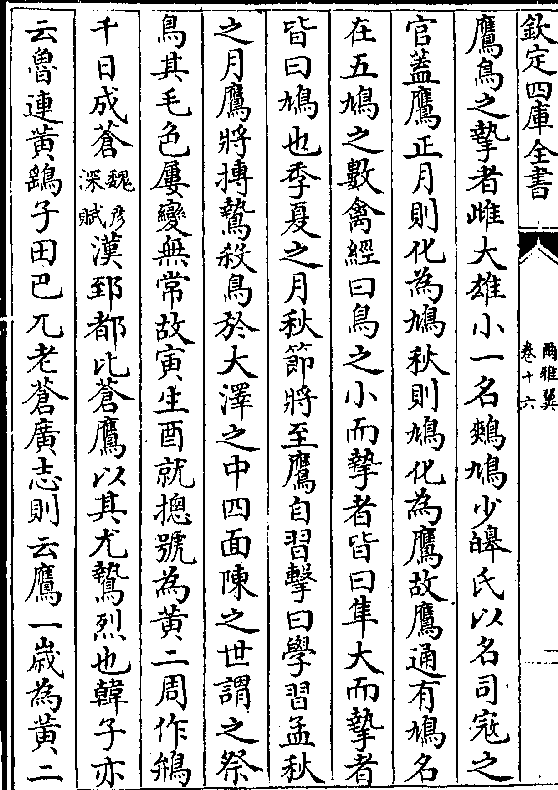 欽定四庫全書
爾雅翼
卷十六
一
鷹鳥之摯者雌大雄小一名鷞鳩少皞氏以名司寇之
官蓋鷹正月則化為鳩秋則鳩化為鷹故鷹通有鳩名
在五鳩之數禽經曰鳥之小而摯者皆曰隼大而摯者
皆曰鳩也季夏之月秋節將至鷹自習擊曰學習孟秋
之月鷹將搏鷙殺鳥於大澤之中四面陳之世謂之祭
鳥其毛色屢變無常故寅生酉就摠號為黃二周作鴘
千日成蒼魏彥深賦漢郅都比蒼鷹以其尤鷙烈也韓子亦
云魯連黃鷂子田巴兀老蒼廣志則云鷹一歲為黃二